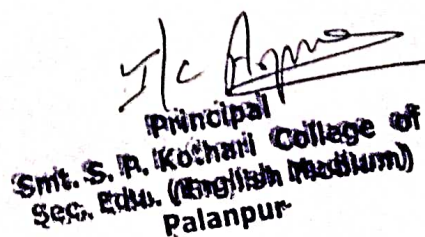 I/c
Principal
Smt. S. P. Kothari College of
Sec. Edu. (English Medium)
Palanpur